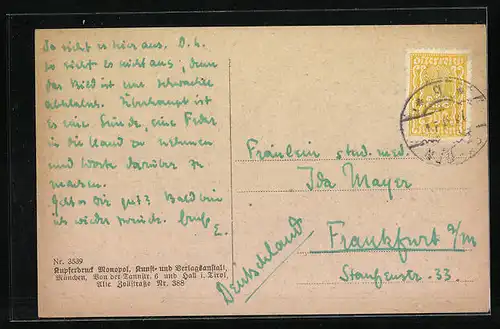 So sieht es hier aus. D.h.
so sieht es nicht aus, denn
das Bild ist nur schwacher
Überhaupt ist
es eine Sünde, eine Feder
in die Hand zu nehmen
und Worte darüber zu
machen.
Geht's Dir gut? Bald bin
ich wieder zurück. Gruß
E.
Nr. 3539
Kupferdruck Monopol, Kunst- und Verlagsanstalt,
München, Von der Tannstr. 6 und Hall i. Tirol,
Alte Zollstraße Nr. 388
Fräulein stud. med.
Ida Mayer
Frankfurt a/M
Staufenstr. 33
Deutschland